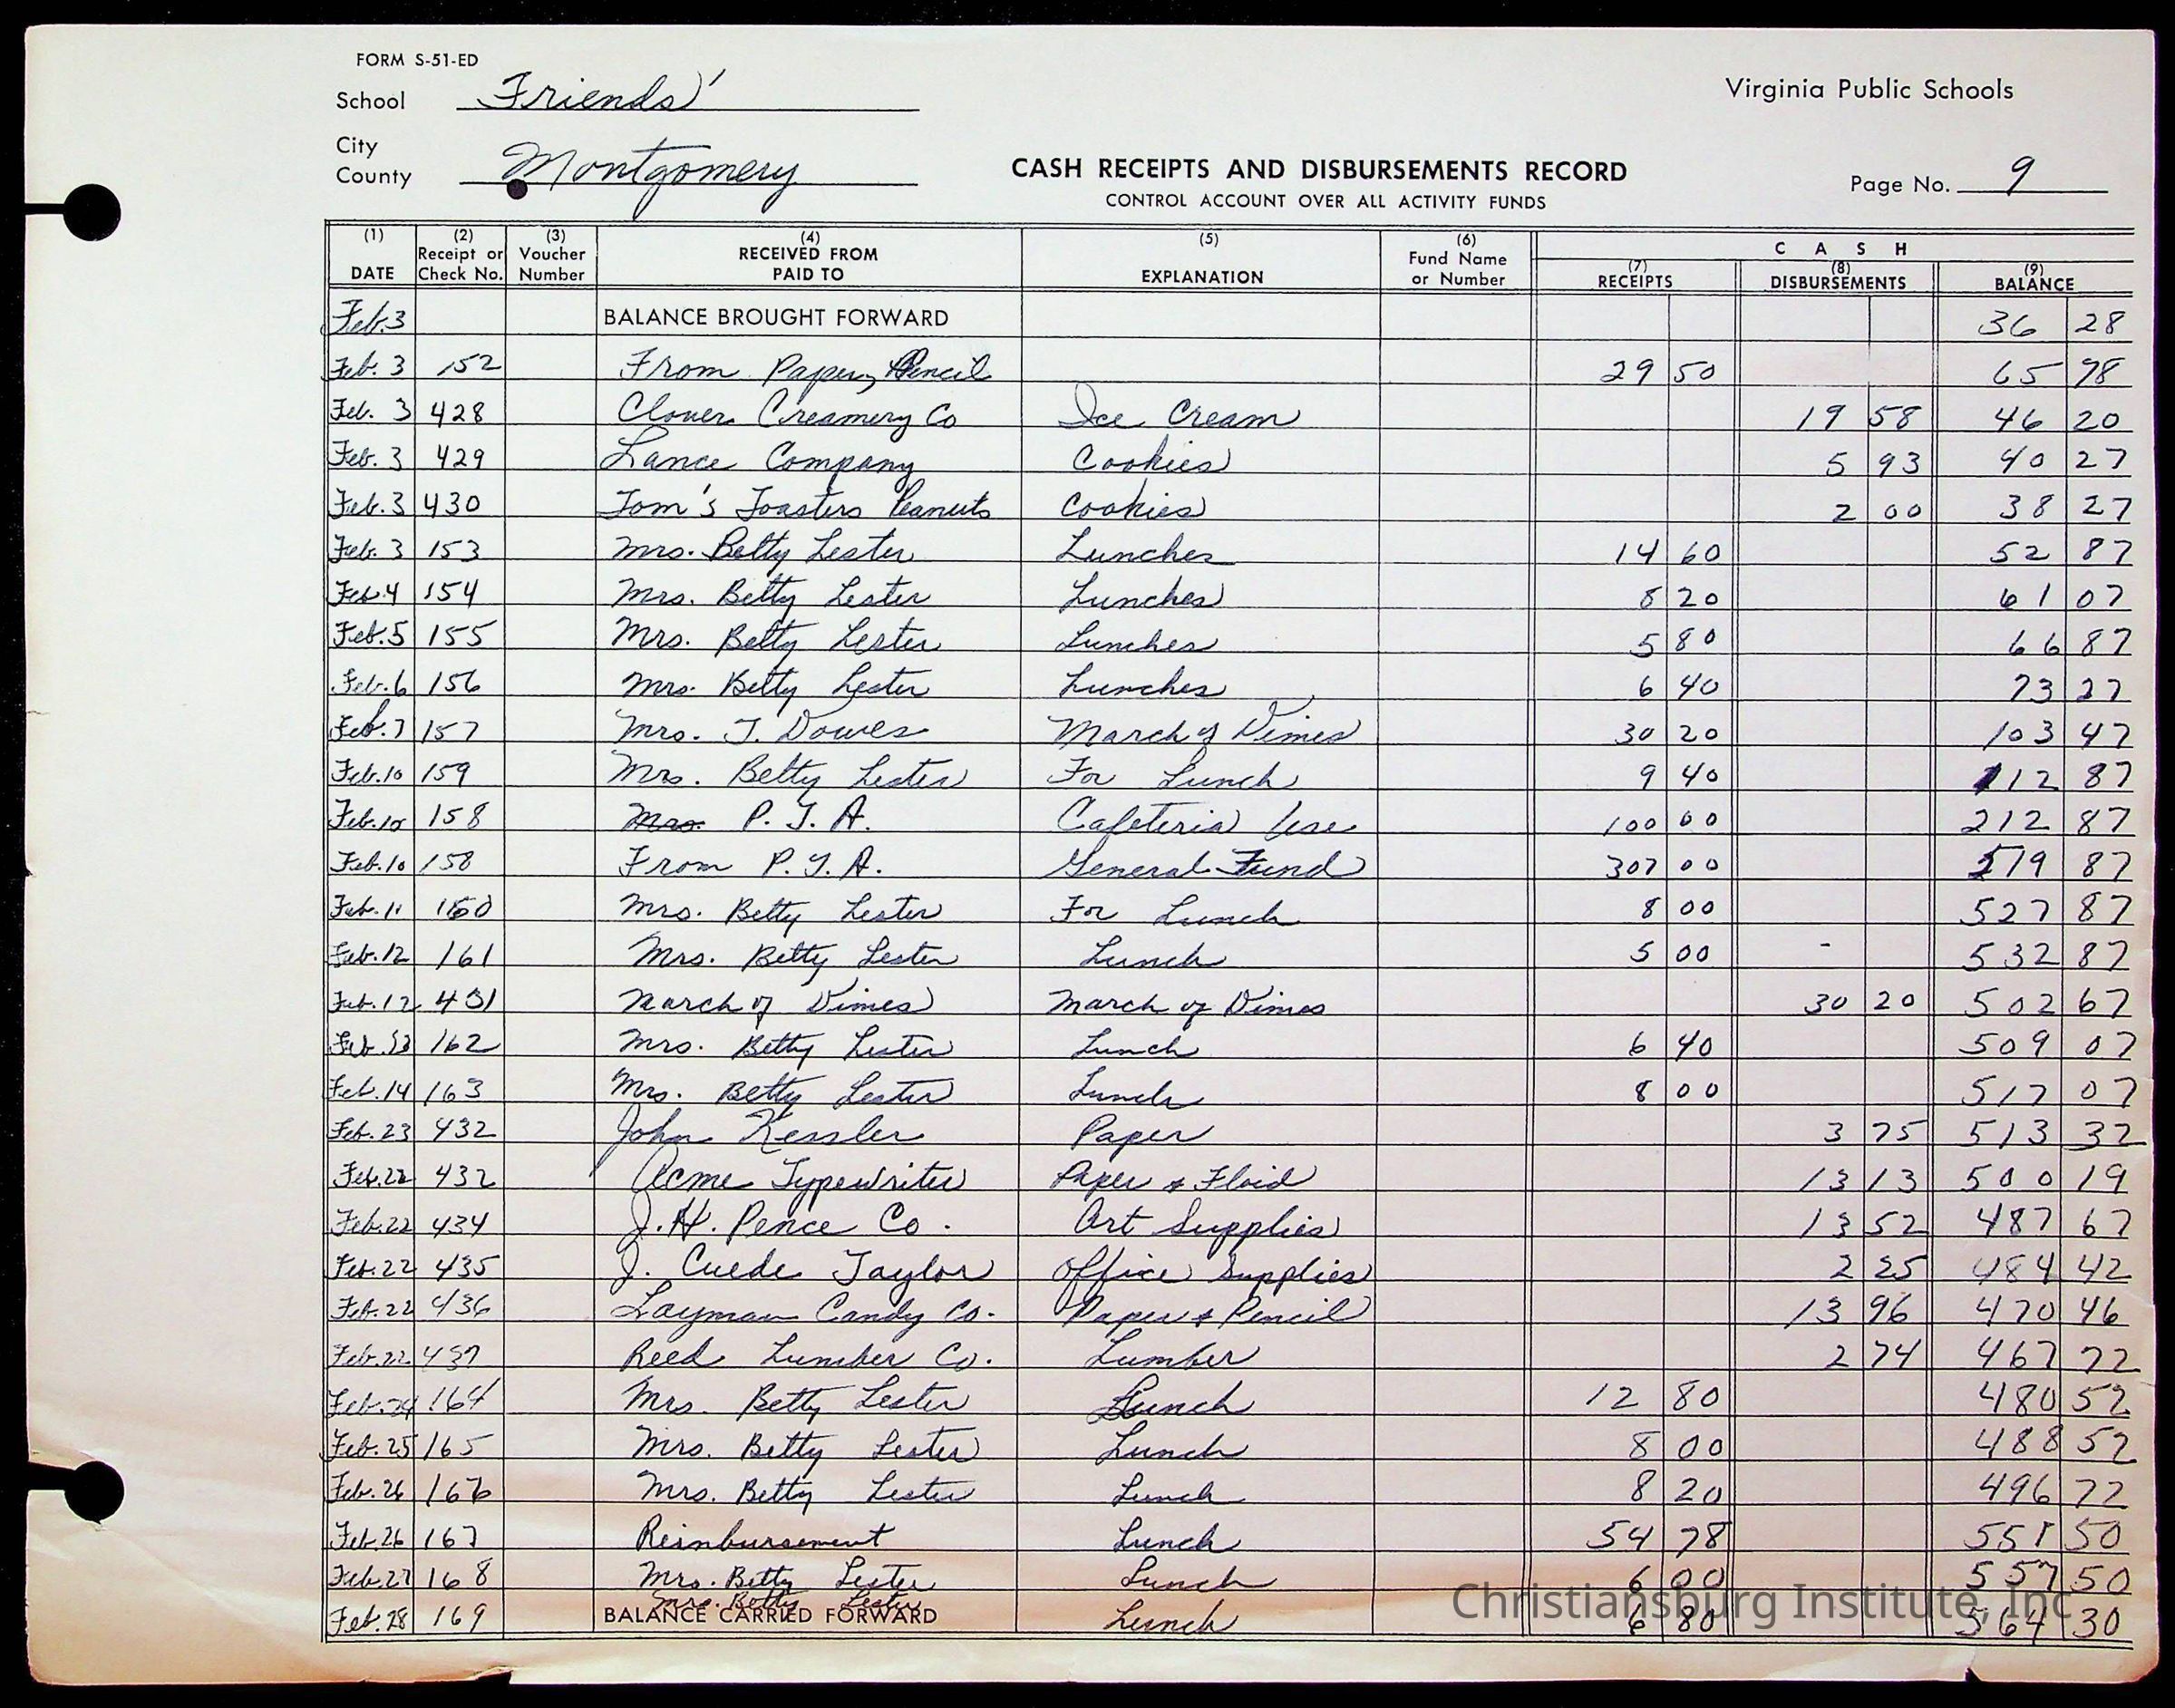 FORM S-51-ED
School Friends'
Virginia Public Schools
City
County Montgomery
CASH RECEIPTS AND DISBURSEMENTS RECORD
CONTROL ACCOUNT OVER ALL ACTIVITY FUNDS
Page No. 9
(1) DATE (2) Receipt or Check No. (3) Voucher Number (4) RECEIVED FROM PAID TO (5) EXPLANATION (6) Fund Name or Number CASH (7) RECEIPTS (8) DISBURSEMENTS (9) BALANCE
Feb. 3 BALANCE BROUGHT FORWARD 36 28
Feb. 3 152 From Paper, Pencil 29 50 65 78
Feb. 3 428 Clover Creamery Co Ice Cream 19 58 46 20
Feb. 3 429 Lance Company Cookies 5 93 40 27
Feb. 3 430 Tom's Toasters Peanuts Cookies 2 00 38 27
Feb. 3 153 Mrs. Betty Lester Lunches 14 60 52 87
Feb. 4 154 Mrs. Betty Lester Lunches 8 20 61 07
Feb. 5 155 Mrs. Betty Lester Lunches 5 80 66 87
Feb. 6 156 Mrs. Betty Lester Lunches 6 40 73 27
Feb. 7 157 Mrs. T. Dowes March of Dimes 30 20 103 47
Feb. 10 159 Mrs. Betty Lester For Lunch 9 40 112 87
Feb. 10 158 Mrs. P. T. A. Cafeteria Use 100 00 212 87
Feb. 10 158 From P. T. A. General Fund 307 00 519 87
Feb. 11 160 Mrs. Betty Lester For Lunch 8 00 527 87
Feb. 12 161 Mrs. Betty Lester Lunch 5 00 - 532 87
Feb. 12 431 March of Dimes March of Dimes 30 20 502 67
Feb. 13 162 Mrs. Betty Lester Lunch 6 40 509 07
Feb. 14 163 Mrs. Betty Lester Lunch 8 00 517 07
Feb. 23 432 John Kessler Paper 3 75 513 32
Feb. 22 432 Acme Typewriter Paper & Floid 13 13 500 19
Feb. 22 434 J. H. Pence Co. Art Supplies 13 52 487 67
Feb. 22 435 J. Cuede Taylor Office Supplies 2 25 484 42
Feb. 22 436 Layman Candy Co. Paper & Pencil 13 96 470 46
Feb. 22 437 Reed Lumber Co. Lumber 2 74 467 72
Feb. 24 164 Mrs. Betty Lester Lunch 12 80 480 52
Feb. 25 165 Mrs. Betty Lester Lunch 8 00 488 52
Feb. 26 166 Mrs. Betty Lester Lunch 8 20 496 72
Feb. 26 167 Reimbursement Lunch 54 78 551 50
Feb. 27 168 Mrs. Betty Lester Lunch 6 00 557 50
Feb. 28 169 Mrs. Betty Lester BALANCE CARRIED FORWARD Lunch 6 80 564 30
Christiansburg Institute, Inc